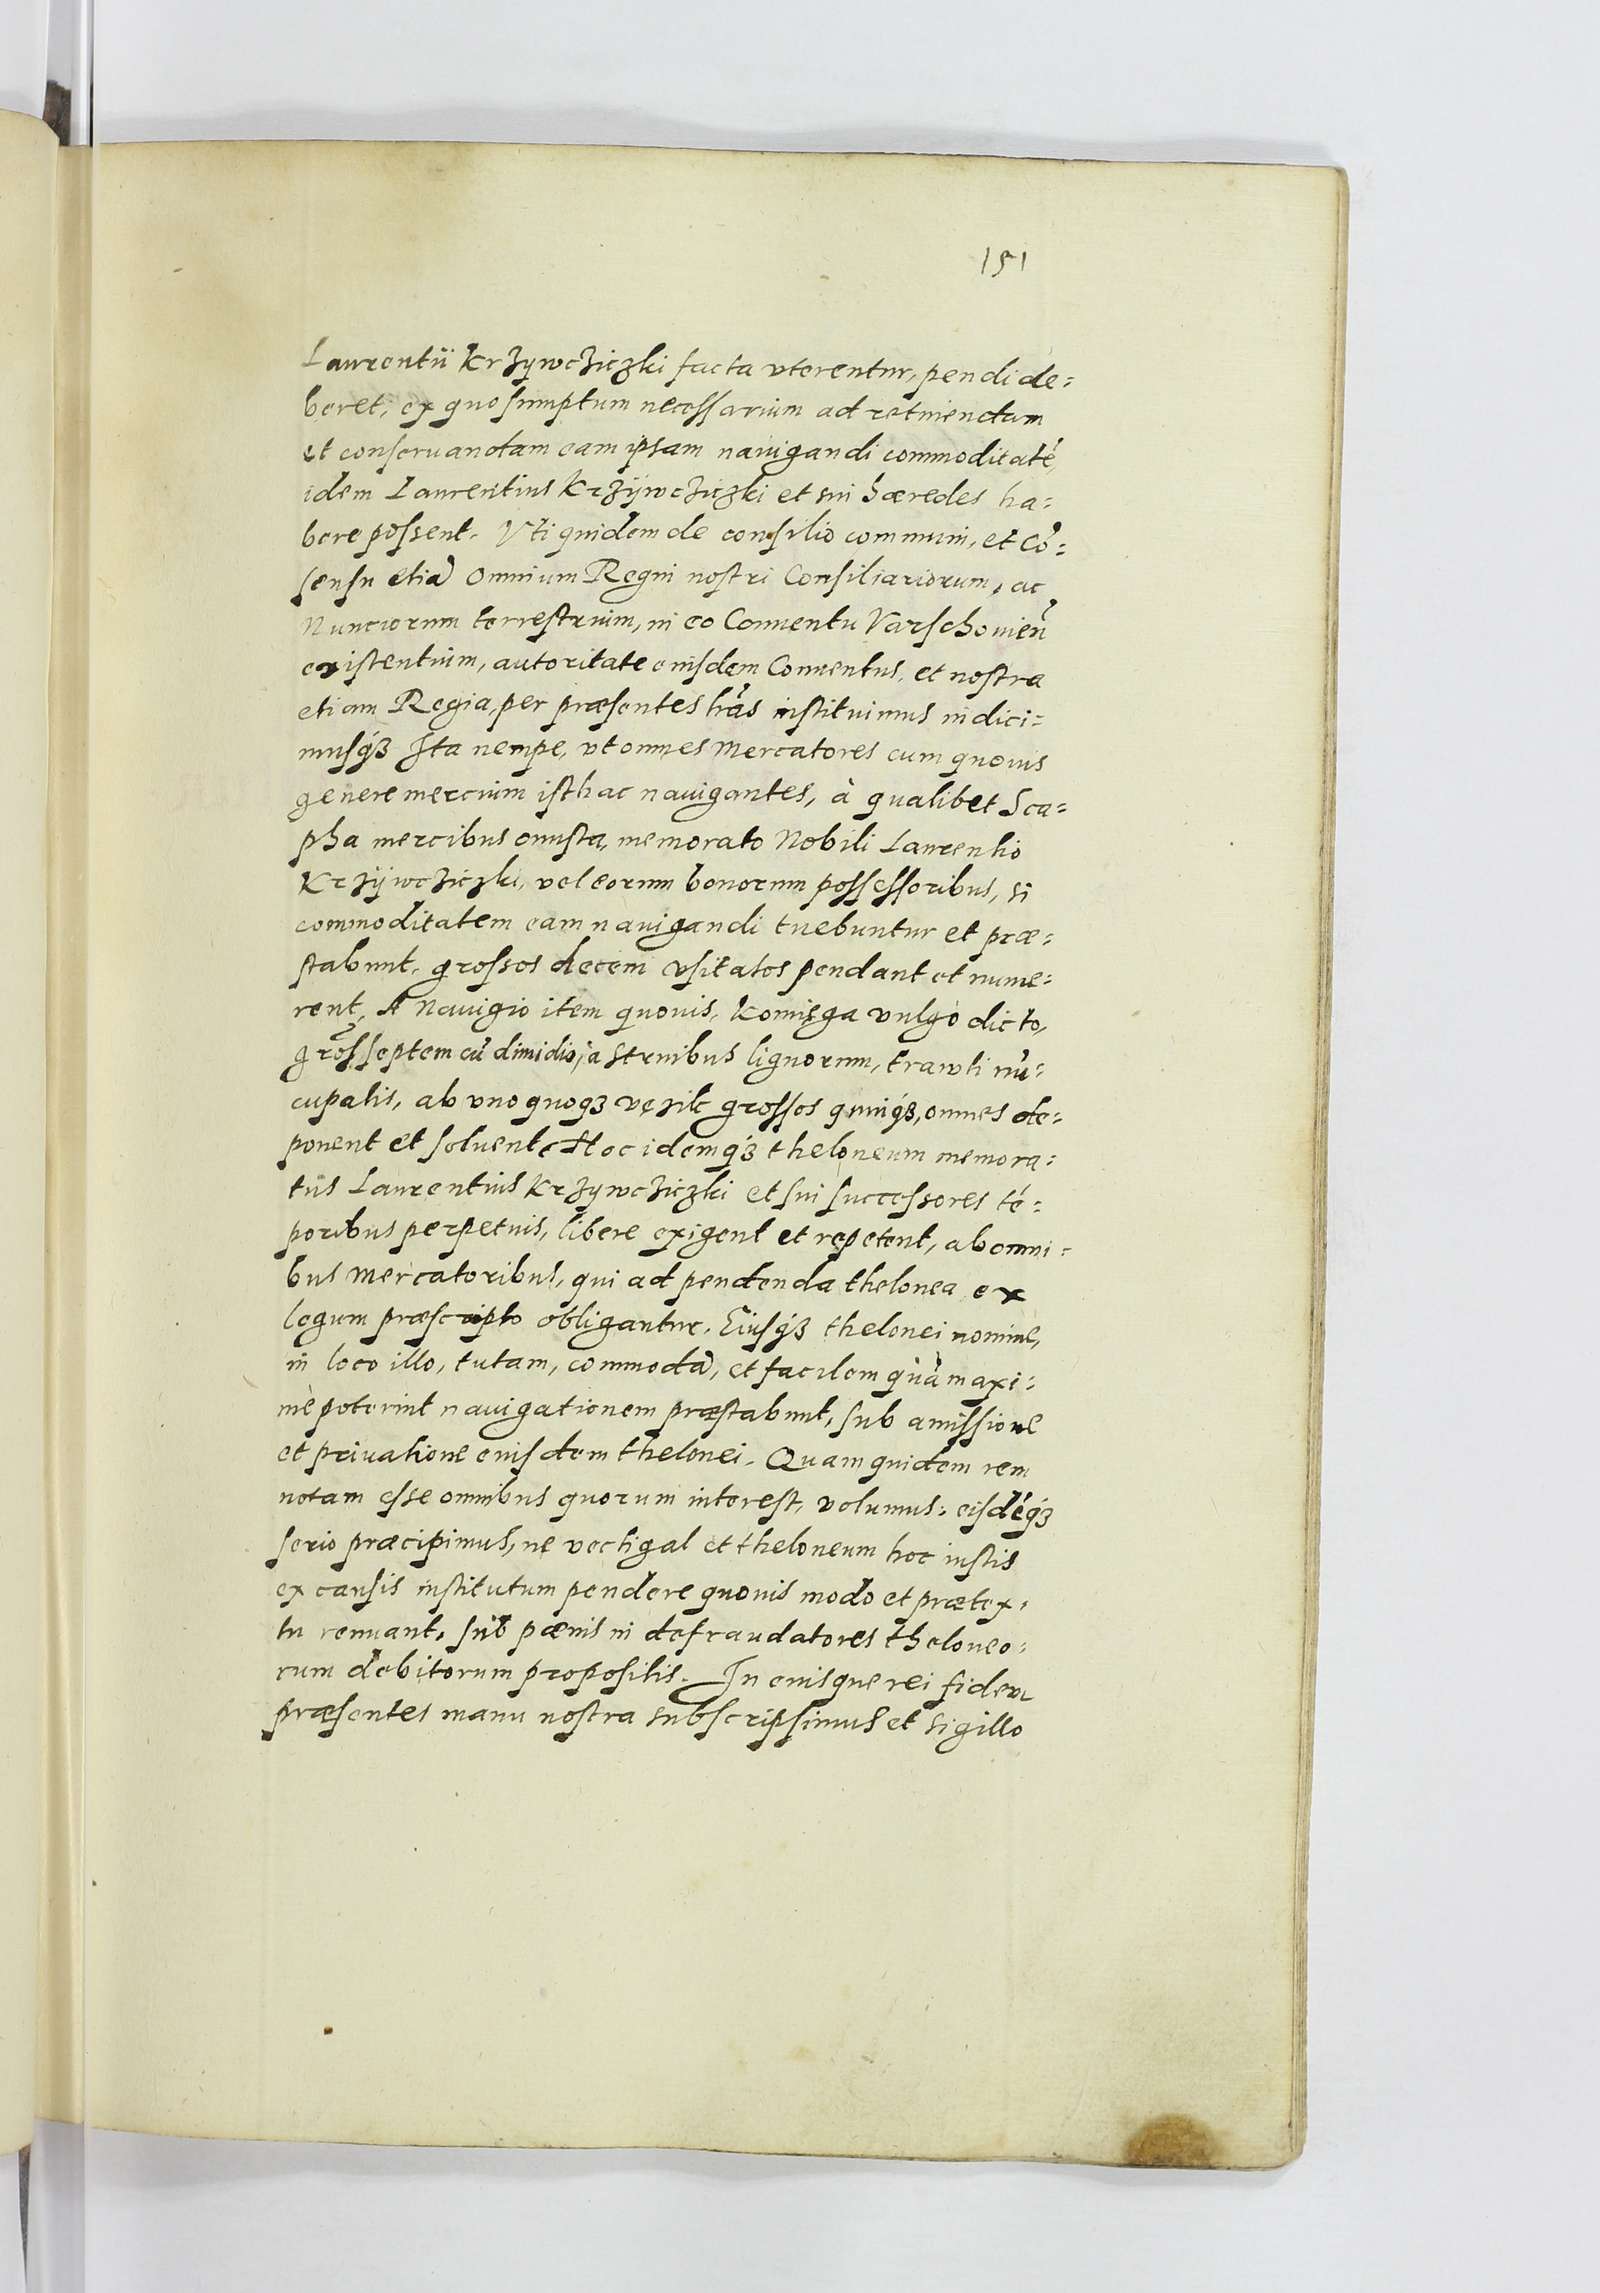 151
Laurentii Krzywcziczki facta vterentur, pendi de=
beret, ex quo sumptum necessarium ad retinendam
et conseruandam eam ipsam nauigandi commoditaté,
idem Laurentius Krzÿwcziczki et sui hæredes ha=
bere possent. Vti quidem de consilio communi, et cō=
sensu etiā omnium Regni nostri Consiliariorum, ac
Nunciorum terrestrium, in eo Conuentu Varschouien̄
existentium, autoritate eiusdem Conuentus, et nostra
etiam Regia, per præsentes lr̄as instituimus indici=
musqȝ Ita nempe, vt omnes Mercatores cum quouis
genere mercium isthac nauigantes, à qualibet Sca=
pha mercibus onusta, memorato Nobili Laurentio
Krzÿwcziczki, vel eorum bonorum possessoribus, si
commoditatem eam nauigandi tuebuntur et præ=
stabunt, grossos decem vsitatos pendant et nume=
rent, A Nauigio item quouis, Komięga vulgo dicto,
gross̄ septem cū dimidio, a struibus lignorum, trawti nū=
cupatis, ab vno quoqȝ vęzilc grossos quinqȝ, omnes de=
ponent et soluent. Hoc idemqȝ theloneum memora=
tus Laurentius Krzywcziczki et sui successores té=
poribus perpetuis, libere exigent et repetent, ab omni=
bus Mercatoribus, qui ad pendenda thelonea ex
legum præscripto obligantur. Eiusqȝ thelonei nomine,
in loco illo, tutam, commodā, et facilem quàm maxi=
mè poterint nauigationem præstabunt, sub amissione
et priuatione eiusdem thelonei. Quam quidem rem
notam esse omnibus quorum interest, volumus: eisdéqȝ
serio præcipimus, ne vectigal et theloneum hoc iustis
ex causis institutum pendere quouis modo et prætex=
tu renuant, sub pænis in defraudatores theloneo=
rum debitorum propositis. In cuiusque rei fidem
præsentes manu nostra subscripsimus et sigillo